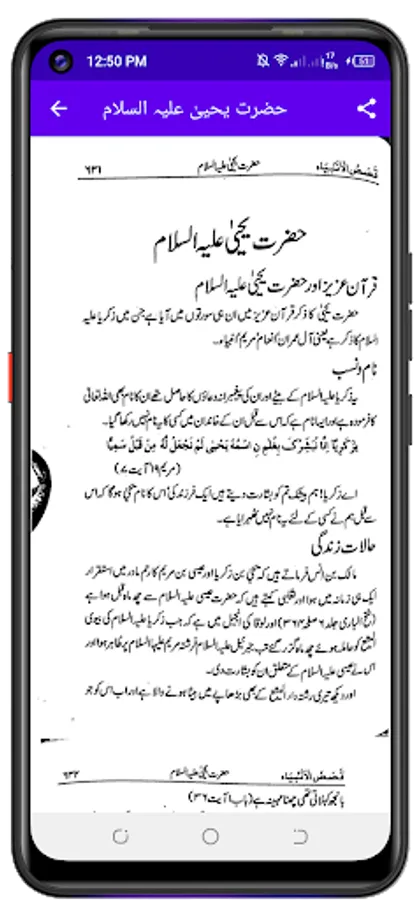 12:50 PM
17 B/s
51
حضرت یحییٰ علیہ السلام
قصص الانبیاء حضرت یحییٰ علیہ السلام ۶۳۱
حضرت یحییٰ علیہ السلام
قرآن عزیز اور حضرت یحییٰ علیہ السلام
حضرت یحییٰ کا ذکر قرآن عزیز میں ان ہی سورتوں میں آیا ہے جن میں زکریا علیہ
السلام کا ذکر ہے یعنی آل عمران، انعام، مریم، انبیاء۔
نام و نسب
یہ زکریا علیہ السلام کے بیٹے اور ان کی پیغمبرانہ دعاؤں کا حاصل تھے ان کا نام بھی اللہ تعالیٰ
کا فرمودہ ہے اور ایسا نام ہے کہ اس سے قبل ان کے خاندان میں کسی کا یہ نام نہیں رکھا گیا۔
يٰزَكَرِيَّآ اِنَّا نُبَشِّرُكَ بِغُلٰمِ نِ اسْمُهٗ يَحْيٰى لَمْ نَجْعَلْ لَّهٗ مِنْ قَبْلُ سَمِيًّا
(مریم ۱۹ آیت ۷)
اے زکریا! ہم بیشک تم کو بشارت دیتے ہیں ایک فرزند کی اس کا نام یحییٰ ہوگا کہ اس
سے قبل ہم نے کسی کے لئے یہ نام نہیں ٹھہرایا ہے۔
حالات زندگی
مالک بن انس فرماتے ہیں کہ یحییٰ بن زکریا اور عیسیٰ بن مریم کا رحم مادر میں استقرار
ایک ہی زمانہ میں ہوا اور ثعلبی کہتے ہیں کہ حضرت عیسیٰ علیہ السلام سے چھ ماہ قبل ہوا ہے
(فتح الباری جلد ۶ صفحہ ۳۶۴) اور لوقا کی انجیل میں ہے کہ جب زکریا علیہ السلام کی بیوی
الیشع کو حاملہ ہوئے چھ ماہ گزر گئے تب جبرئیل علیہ السلام فرشتہ مریم علیہا السلام پر ظاہر ہوا اور
اس نے عیسیٰ علیہ السلام کے متعلق ان کو بشارت دی۔
اور دیکھ تیری رشتہ دار الیشع کے بھی بڑھاپے میں بیٹا ہونے والا ہے اور اب اس کو جو
قصص الانبیاء حضرت یحییٰ علیہ السلام ۶۳۲
بانجھ کہلاتی تھی چھٹا مہینہ ہے (باب آیت ۳۶)